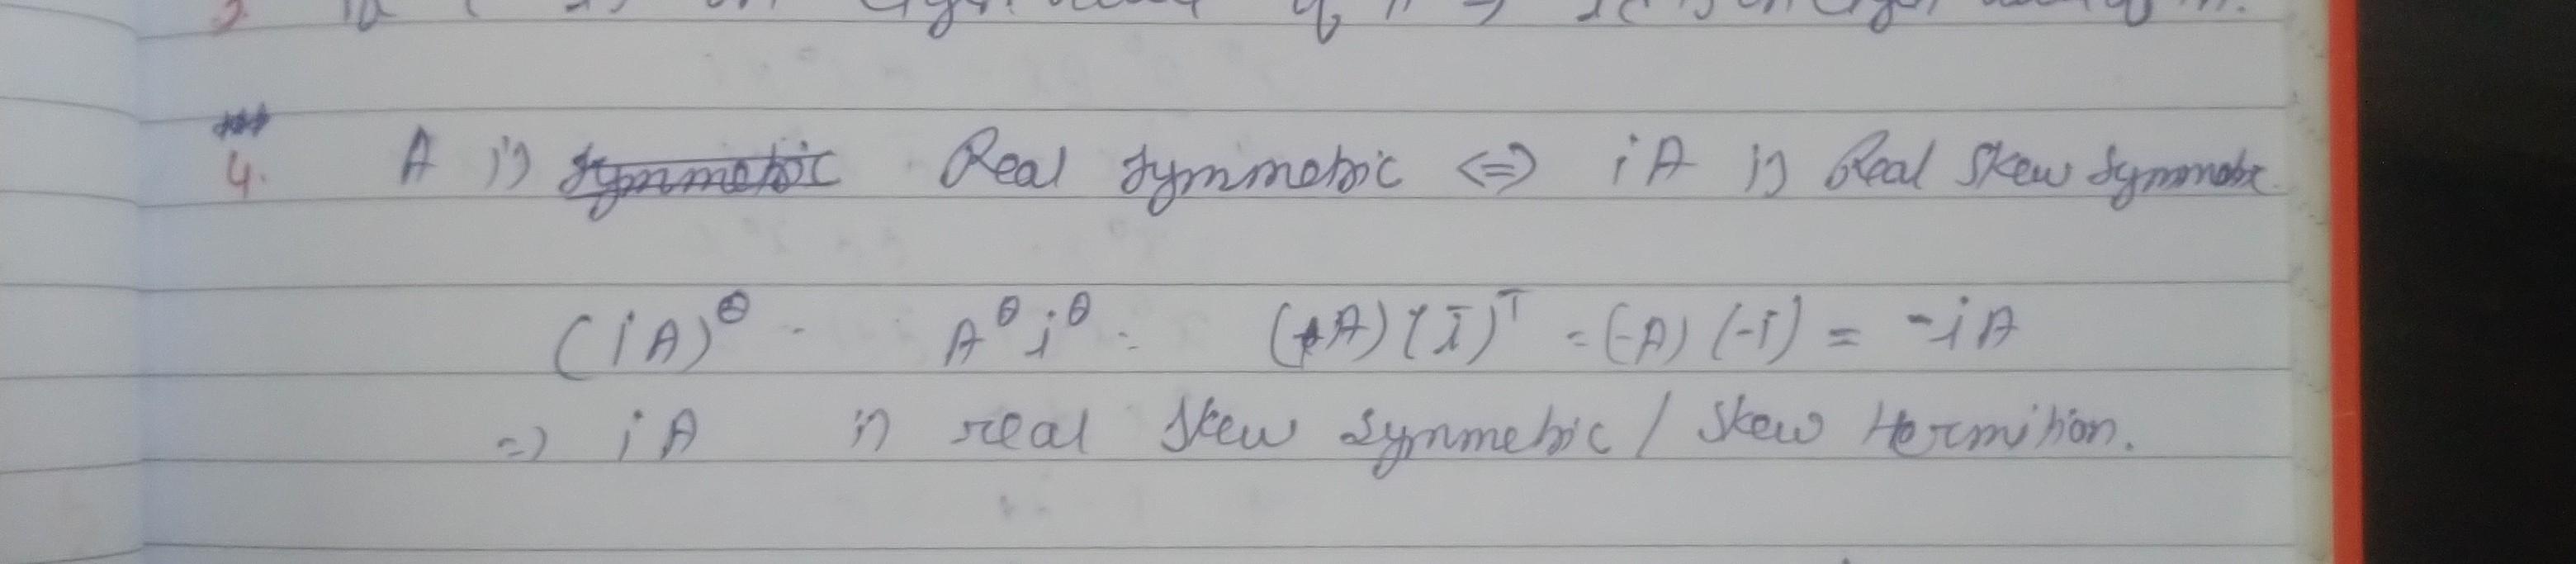 *** 
4. A is Real Symmetric <=> iA is Real Skew Symmetric
(iA)^θ = A^θ i^θ = (A)(ī)^T = (-A)(-i) = -iA
=> iA is real Skew Symmetric / Skew Hermition.